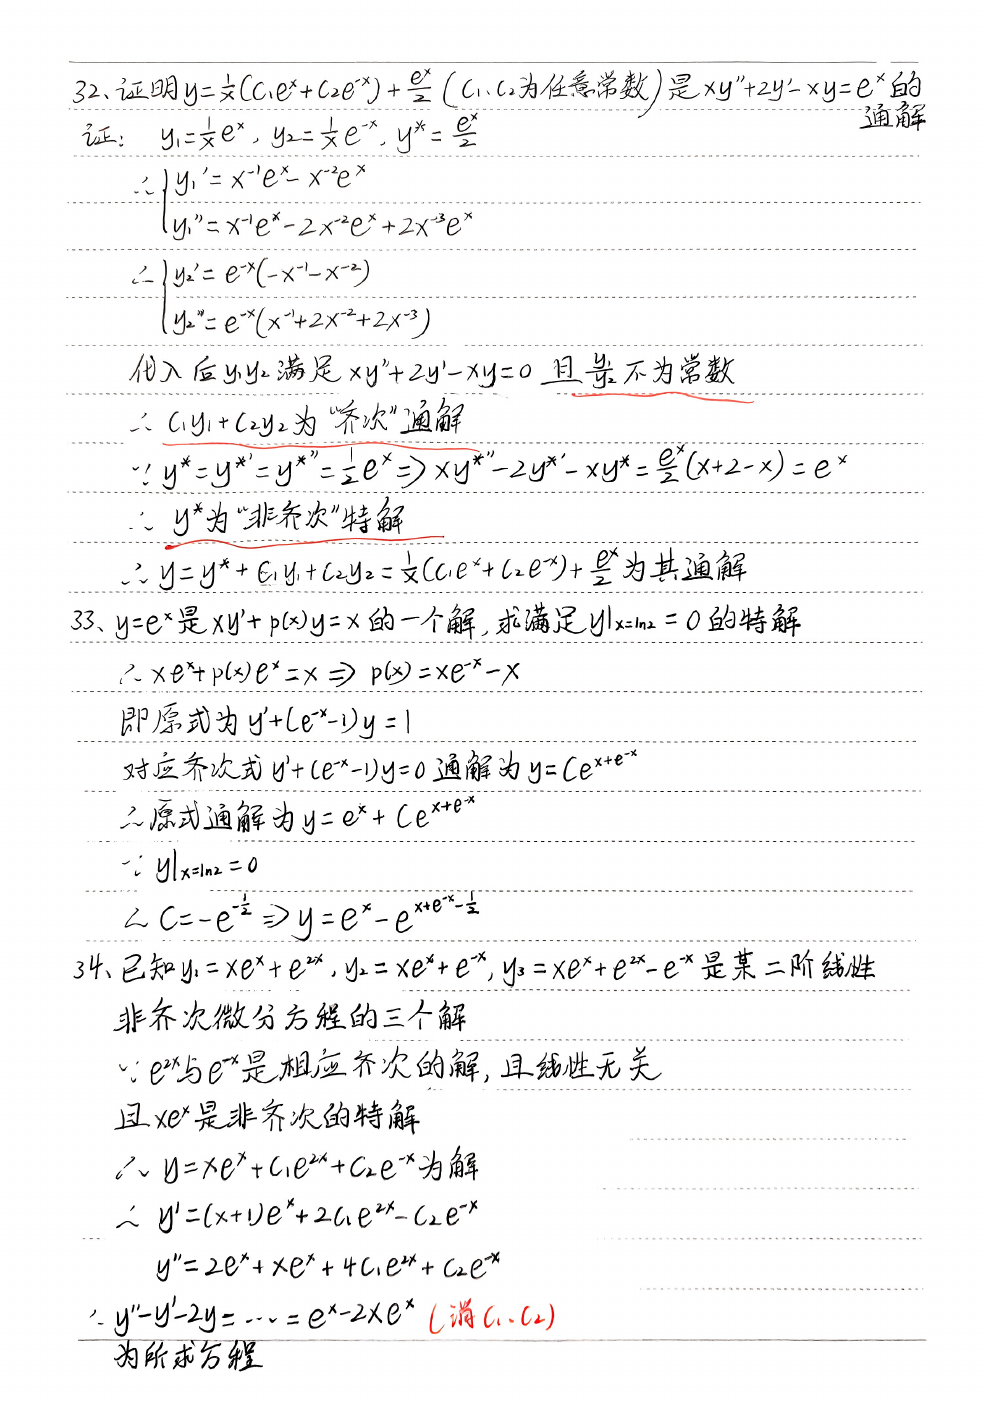 32、证明y=1/x(C₁eˣ+C₂e⁻ˣ)+eˣ/2 (C₁、C₂为任意常数)是xy''+2y'-xy=eˣ的
通解
证: y₁=1/x eˣ, y₂=1/x e⁻ˣ, y*=eˣ/2
∴ { y₁'=x⁻¹eˣ-x⁻²eˣ
y₁''=x⁻¹eˣ-2x⁻²eˣ+2x⁻³eˣ
∴ { y₂'=e⁻ˣ(-x⁻¹-x⁻²)
y₂''=e⁻ˣ(x⁻¹+2x⁻²+2x⁻³)
代入后y₁y₂满足xy''+2y'-xy=0 且y₁/y₂不为常数
∴ C₁y₁+C₂y₂为"齐次"通解
∵ y*=y*'=y*''=1/2 eˣ => xy*''-2y*'-xy*=eˣ/2(x+2-x)=eˣ
∴ y*为"非齐次"特解
∴ y=y*+C₁y₁+C₂y₂=1/x(C₁eˣ+C₂e⁻ˣ)+eˣ/2为其通解
33、y=eˣ是xy'+p(x)y=x的一个解,求满足y|x=ln2=0的特解
∴ xeˣ+p(x)eˣ=x => p(x)=xe⁻ˣ-x
即原式为y'+(e⁻ˣ-1)y=1
对应齐次式y'+(e⁻ˣ-1)y=0通解为y=Ce^(x+e⁻ˣ)
∴原式通解为y=eˣ+Ce^(x+e⁻ˣ)
∵ y|x=ln2=0
∴ C=-e^(-1/2) => y=eˣ-e^(x+e⁻ˣ-1/2)
34、已知y₁=xeˣ+e²ˣ, y₂=xeˣ+e⁻ˣ, y₃=xeˣ+e²ˣ-e⁻ˣ是某二阶线性
非齐次微分方程的三个解
∵ e²ˣ与e⁻ˣ是相应齐次的解,且线性无关
且xeˣ是非齐次的特解
∴ y=xeˣ+C₁e²ˣ+C₂e⁻ˣ为解
∴ y'=(x+1)eˣ+2C₁e²ˣ-C₂e⁻ˣ
y''=2eˣ+xeˣ+4C₁e²ˣ+C₂e⁻ˣ
∴ y''-y'-2y=…=eˣ-2xeˣ (消C₁、C₂)
为所求方程